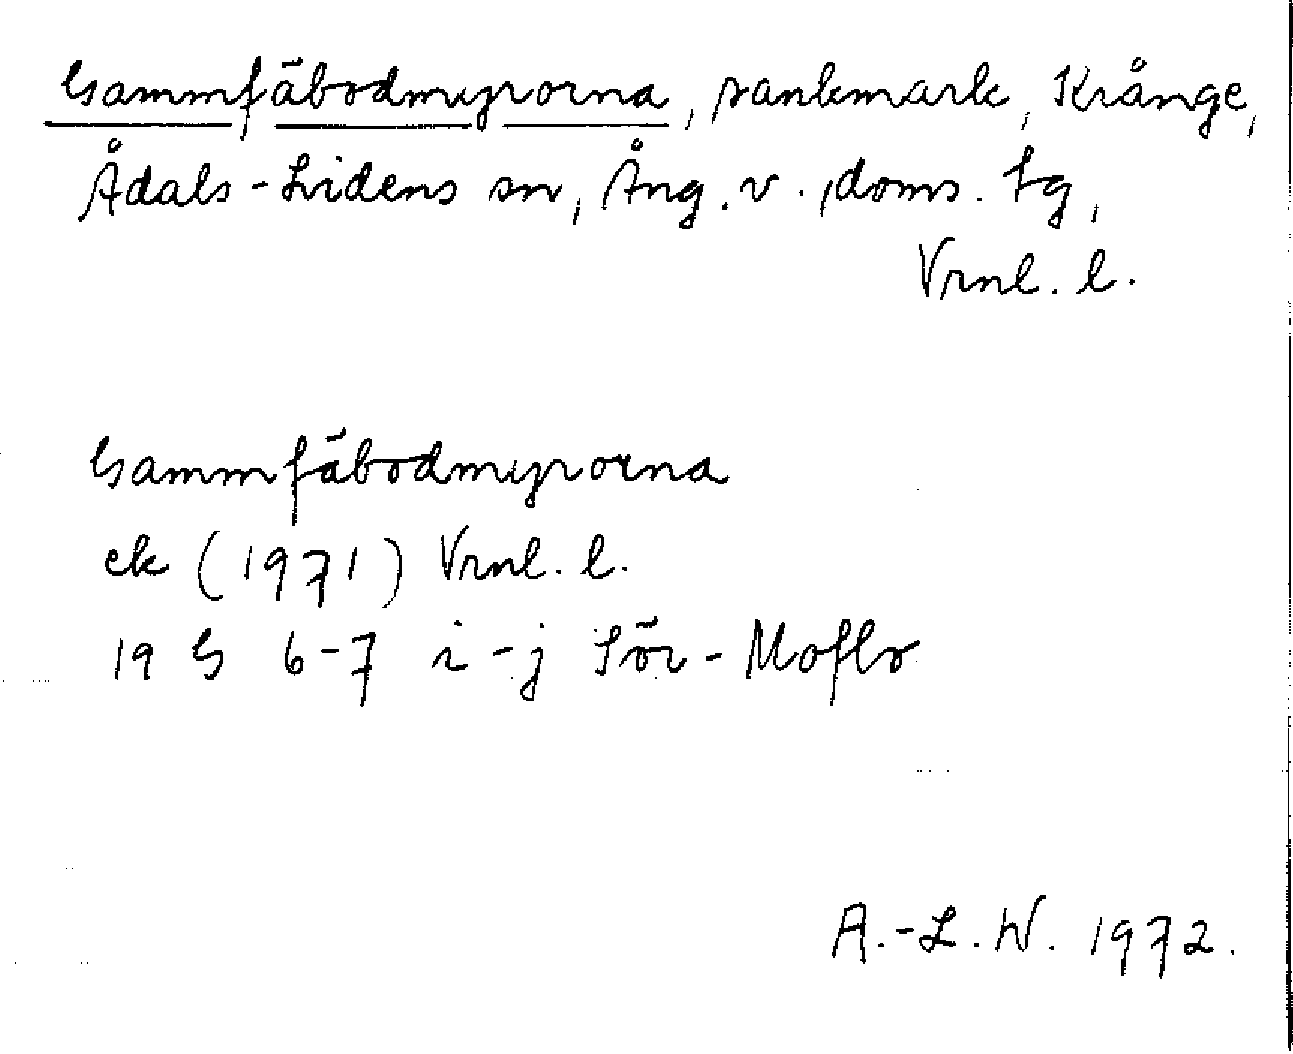 Gammfäbodmyrorna, sankmark, Krånge,
Ådals-Lidens sn, Ång. v. doms. tg,
Vrnl. l.
Gammfäbodmyrorna
ek (1971) Vrnl. l.
19 G 6-7 i-j Sör-Moflo
A.-L. W. 1972.